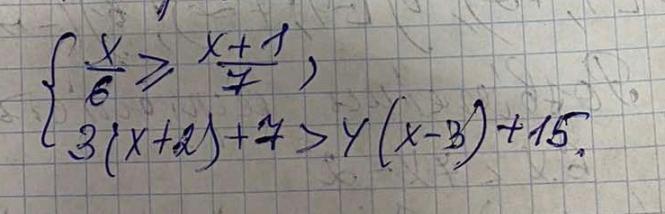 { x/6 ⩾ (x+1)/7,
3(x+2)+7>4(x-3)+15.